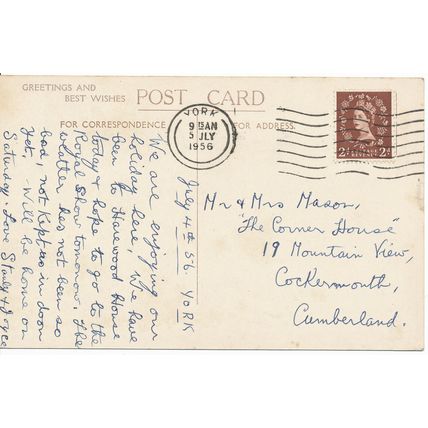 GREETINGS AND
BEST WISHES
POST CARD
FOR CORRESPONDENCE
FOR ADDRESS.
YORK
9 15 AM
5 JLY
1956
2d 2d
July 4th 56 YORK
We are enjoying our
holiday here, We have
been to Harewood House
today & hope to go to the
Royal Show tomorrow. The
weather has not been so
bad, not kept us in doors
yet, Will be home on
Saturday. Love Stanley & Joyce
Mr & Mrs Mason,
"The Corner House"
19 Mountain View,
Cockermouth,
Cumberland.